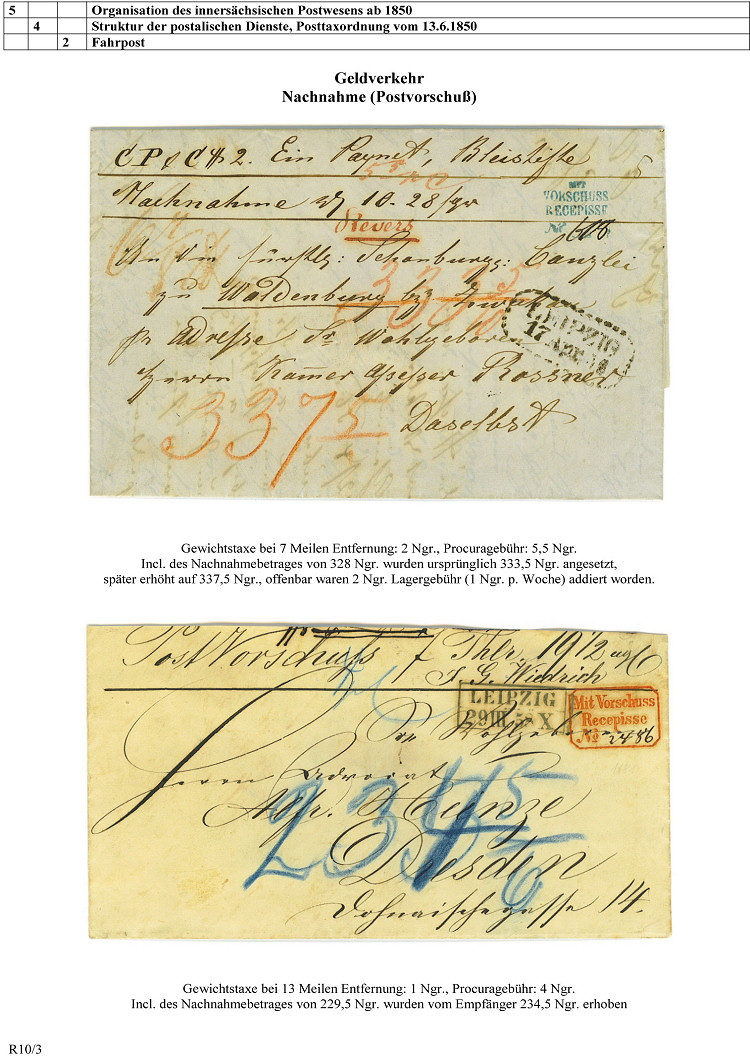 5 Organisation des innersächsischen Postwesens ab 1850
4 Struktur der postalischen Dienste, Posttaxordnung vom 13.6.1850
2 Fahrpost
Geldverkehr
Nachnahme (Postvorschuß)
C P & C # 2. Ein Paquet, Bleistifte
Nachnahme 10. 28 /gr
MIT
VORSCHUSS
RECEPISSE
No 608
Revers
An die fürstlg: Schönburgg: Canzlei
333 5
zu Waldenburg by
LEIPZIG
17 Apr
pr Adresse Sr Wohlgeboren
Herrn Kammer Assessor Rossner
337 5
Daselbst
Gewichtstaxe bei 7 Meilen Entfernung: 2 Ngr., Procuragebühr: 5,5 Ngr.
Incl. des Nachnahmebetrages von 328 Ngr. wurden ursprünglich 333,5 Ngr. angesetzt,
später erhöht auf 337,5 Ngr., offenbar waren 2 Ngr. Lagergebühr (1 Ngr. p. Woche) addiert worden.
Post Vorschuss 7 Thlr 19 1/2
LEIPZIG
29 III 5 X
Mit Vorschuss
Recepisse
No 2486
Herrn Advocat
Heinze
234 5
Dresden
6
Dohnaischegasse 14.
Gewichtstaxe bei 13 Meilen Entfernung: 1 Ngr., Procuragebühr: 4 Ngr.
Incl. des Nachnahmebetrages von 229,5 Ngr. wurden vom Empfänger 234,5 Ngr. erhoben
R10/3